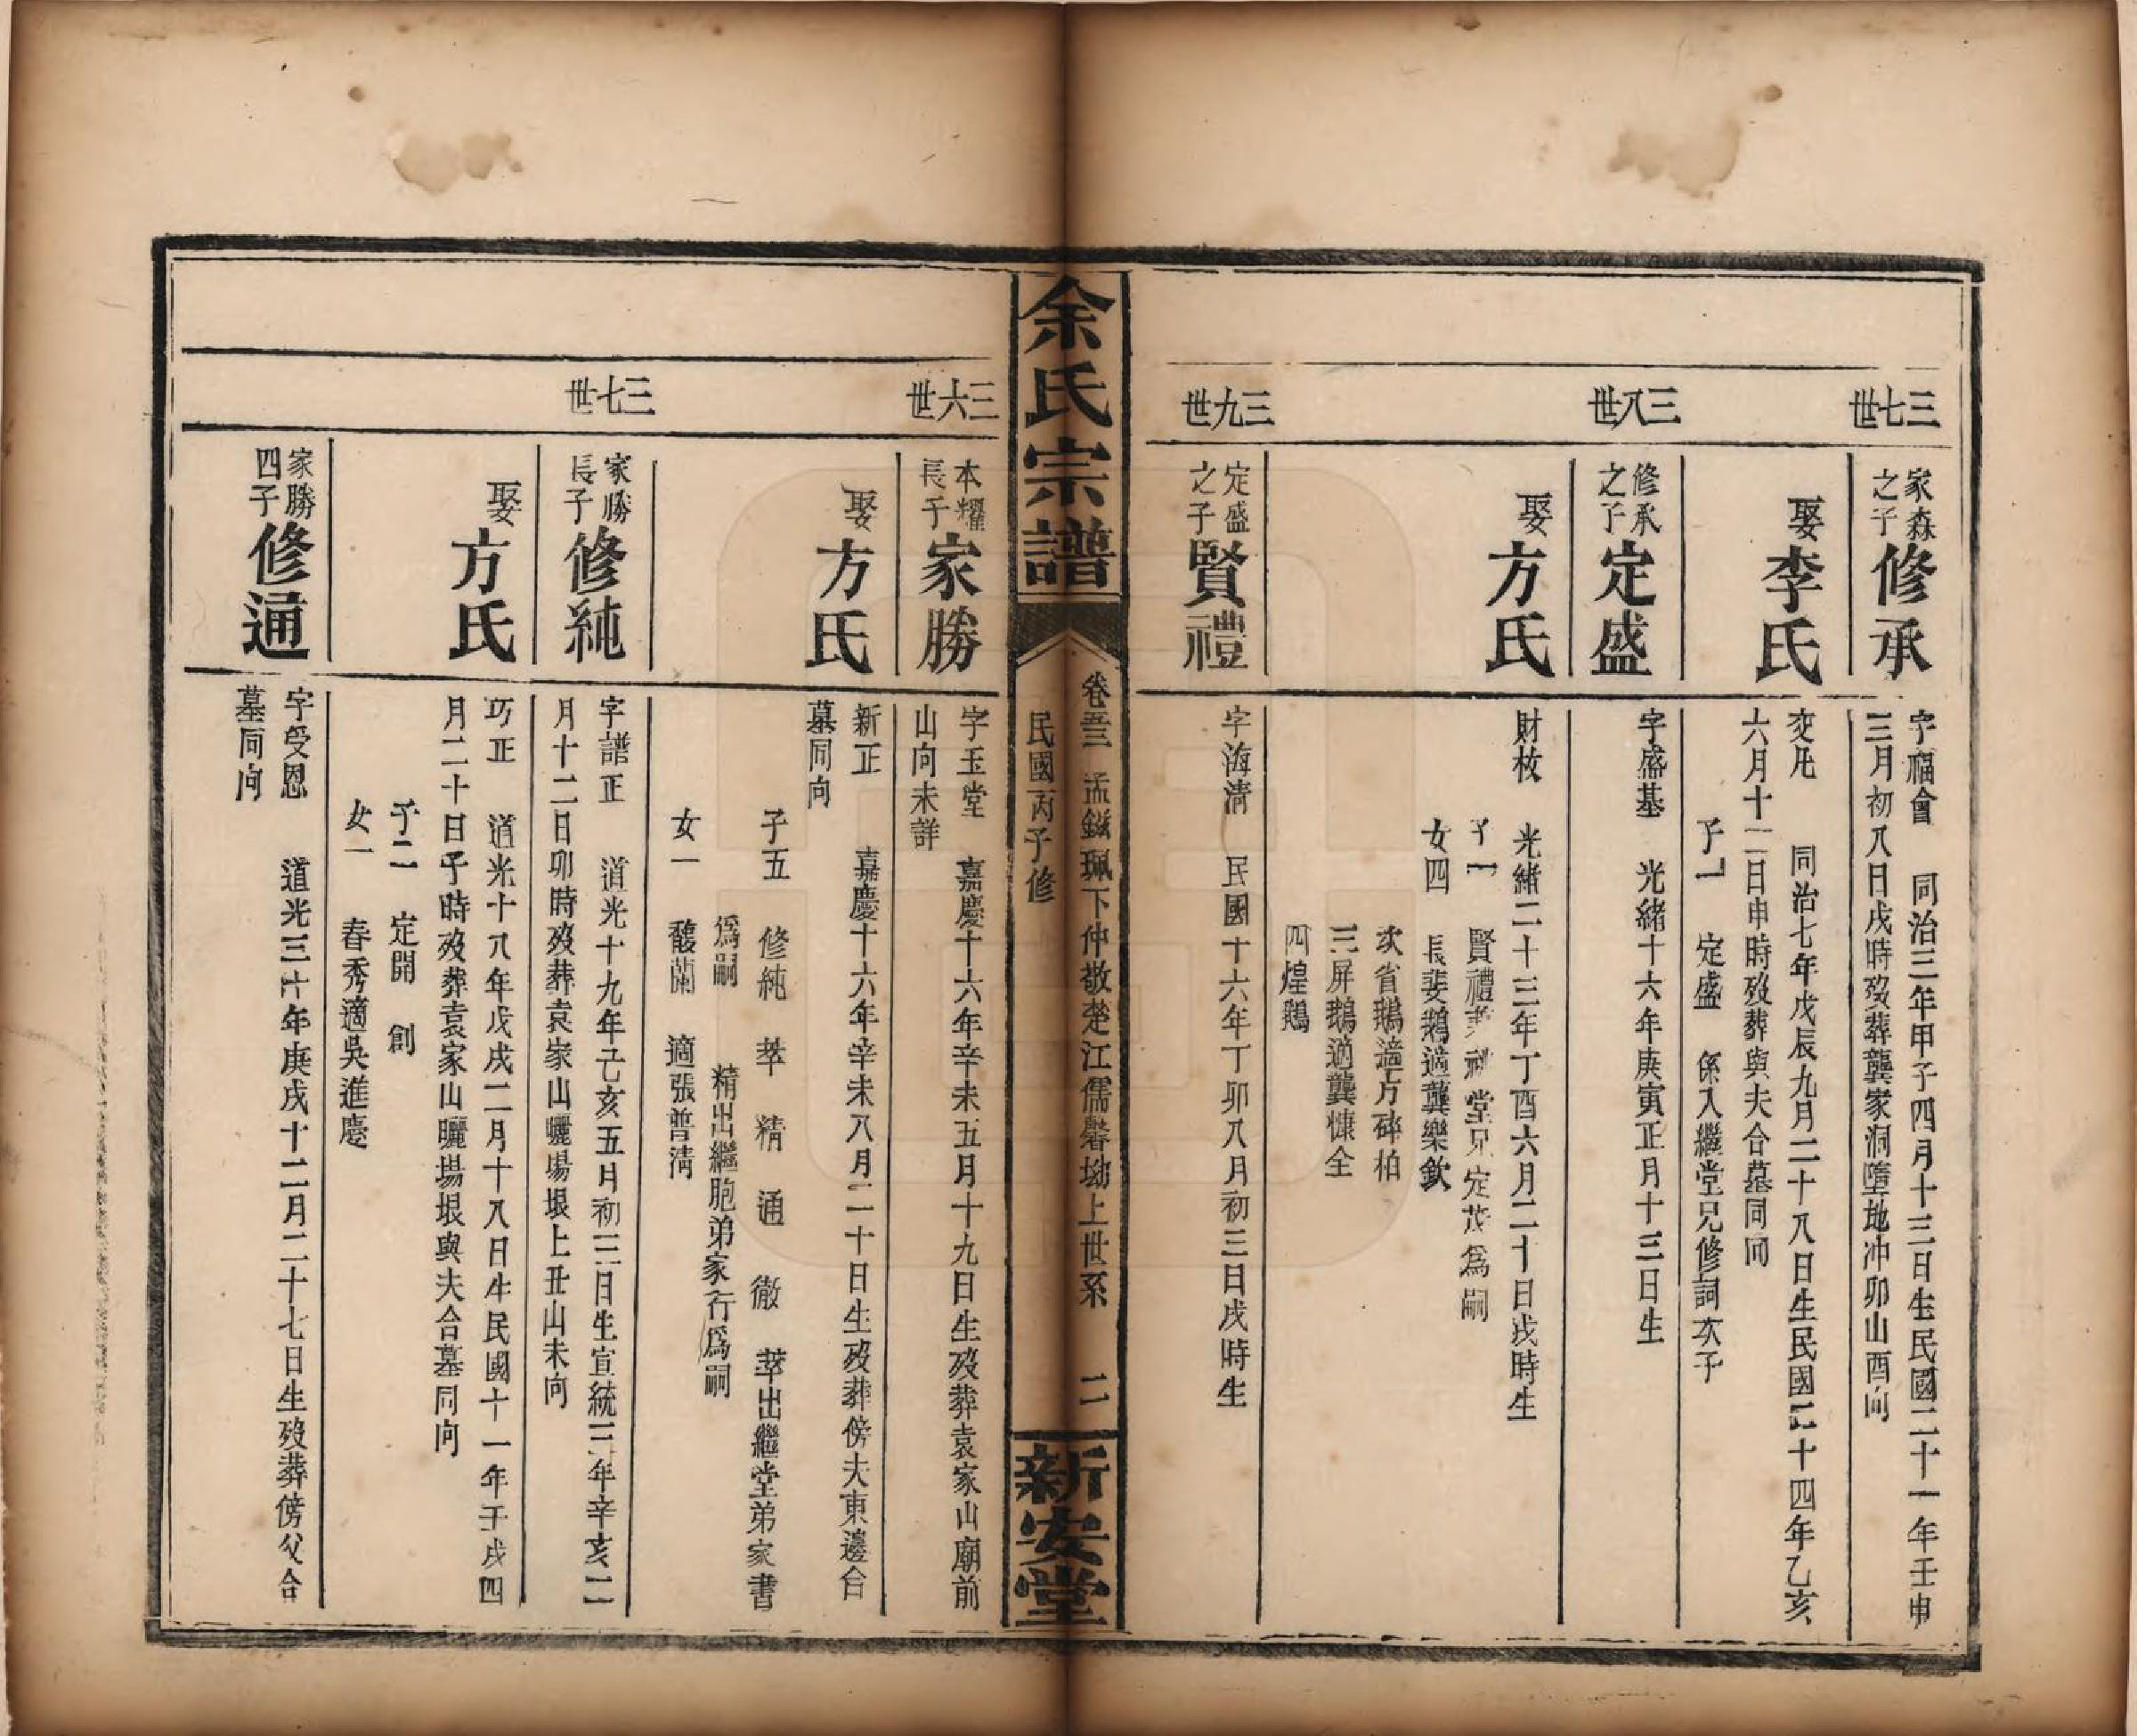 三七世
家森之子修承
字福會 同治三年甲子四月十三日生民國二十一年壬申
三月初八日戌時歿葬龔家洞墮地冲卯山酉向
娶李氏
交凡 同治七年戊辰九月二十八日生民國二十四年乙亥
六月十二日申時歿葬與夫合墓同向
子一 定盛 係入繼堂兄修詞次子
三八世
修承之子定盛
字盛基 光緒十六年庚寅正月十三日生
娶方氏
財枝 光緒二十三年丁酉六月二十日戌時生
子一 賢禮 堂兄定茂爲嗣
女四 長斐鵝適龔樂欽
次省鵝適方碎柏
三屏鵝適龔慷全
四煌鵝
三九世
定盛之子賢禮
字海清 民國十六年丁卯八月初三日戌時生
余氏宗譜
卷三 孟鎰珮下仲敬楚江儒馨坳上世系 二
民國丙子修
新安堂
三六世
本耀長子家勝
字玉堂 嘉慶十六年辛未五月十九日生歿葬袁家山廟前
山向未詳
娶方氏
新正 嘉慶十六年辛未八月二十日生歿葬傍夫東邊合
墓同向
子五 修純 萃 精 通 徹 萃出繼堂弟家書
爲嗣 精出繼胞弟家行爲嗣
女一 馥蘭 適張普清
三七世
家勝長子修純
字譜正 道光十九年己亥五月初三日生宣統三年辛亥二
月十二日卯時歿葬袁家山曬場垠上丑山未向
娶方氏
巧正 道光十八年戊戌二月十八日生民國十一年壬戌四
月二十日子時歿葬袁家山曬場垠與夫合墓同向
子二 定開 創
女一 春秀適吳進慶
家勝四子修通
字受恩 道光三十年庚戌十二月二十七日生歿葬傍父合
墓同向